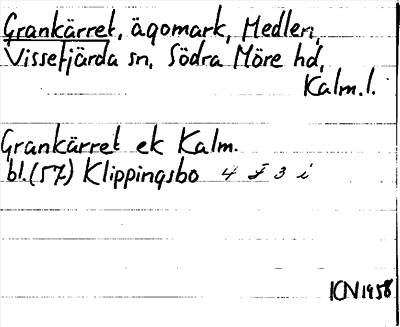 Grankärret, ägomark, Medlen,
Vissefjärda sn, Södra Möre hd,
Kalm.l.
Grankärret ek Kalm.
bl.(57) Klippingsbo 4 F 3 i
ICN 1958